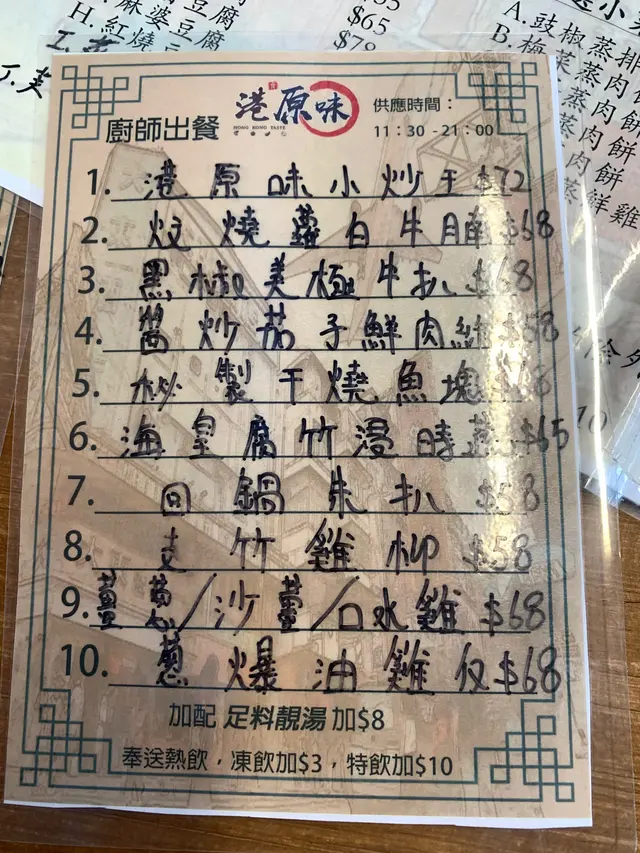 麻婆豆腐
H.紅燒豆腐
$65
$78
A.豉椒蒸排
B.梅菜蒸肉餅
蒸肉餅
蒸肉餅
蒸肉餅
蒸鮮雞
廚師出餐
港原味
HONG KONG TASTE
供應時間：
11：30 -21：00
1. 港原味小炒王 $72
2. 炆燒蘿白牛腩 $68
3. 黑椒美極牛扒 $68
4. 醬炒茄子鮮肉絲 $58
5. 秘製干燒魚塊 $68
6. 海皇腐竹浸時蔬 $65
7. 回鍋朱扒 $58
8. 支竹雞柳 $58
9. 薑葱/沙薑/口水雞 $68
10. 葱爆油雞 $68
加配 足料靚湯 加$8
奉送熱飲，凍飲加$3，特飲加$10